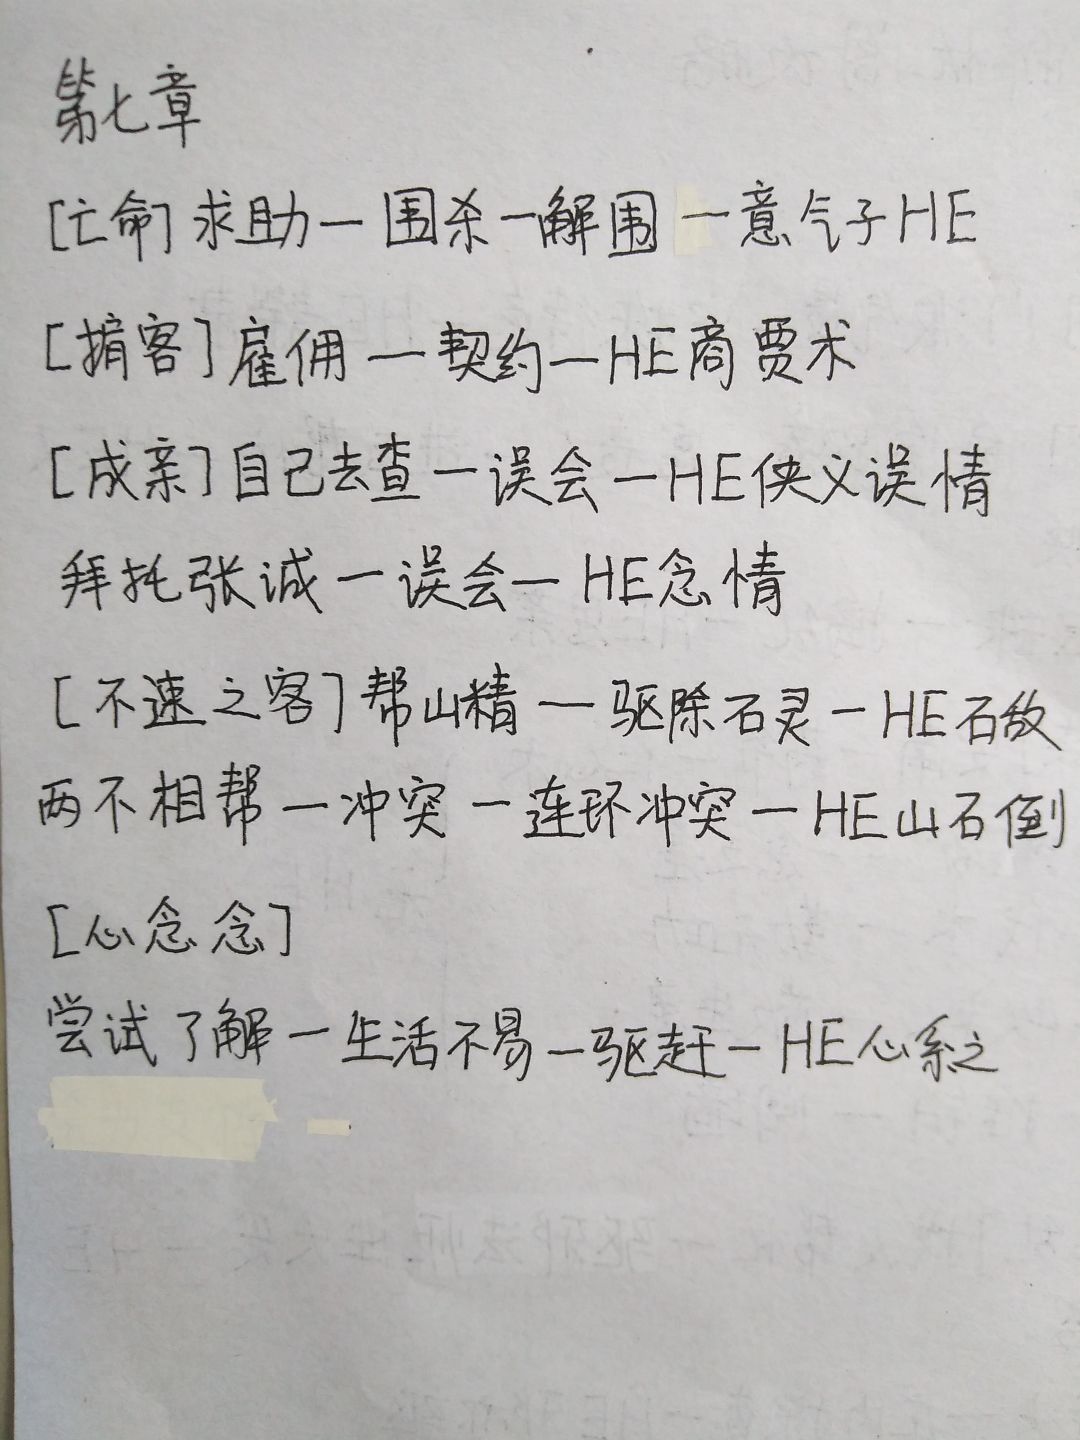 第七章
[亡命] 求助一围杀一解围 一意气子HE
[掮客] 雇佣一契约一HE商贾术
[成亲] 自己去查一误会一HE侠义误情
拜托张诚一误会一HE念情
[不速之客] 帮山精一驱除石灵一HE石敌
两不相帮一冲突一连环冲突一HE山石倒
[心念念]
尝试了解一生活不易一驱赶一HE心系之